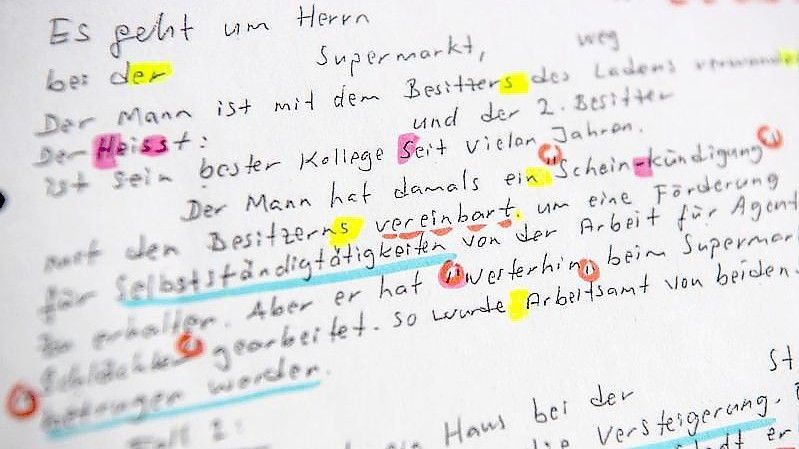 Es geht um Herrn
bei der Supermarkt, weg
Der Mann ist mit dem Besitzers des Ladens verwande
Der Heisst: und der 2. Besitzer
ist sein bester Kollege Seit vielen Jahren.
Der Mann hat damals ein "Schein-kündigung"
mit den Besitzerns vereinbart. um eine Förderung
für Selbstständigtätigkeiten von der Arbeit für Agent
zu erhalten. Aber er hat "Westerhin" beim Supermar
gearbeitet. So wurde Arbeitsamt von beiden.
betrogen worden.
Fall 2:
Haus bei der St
die Versteigerung.
er